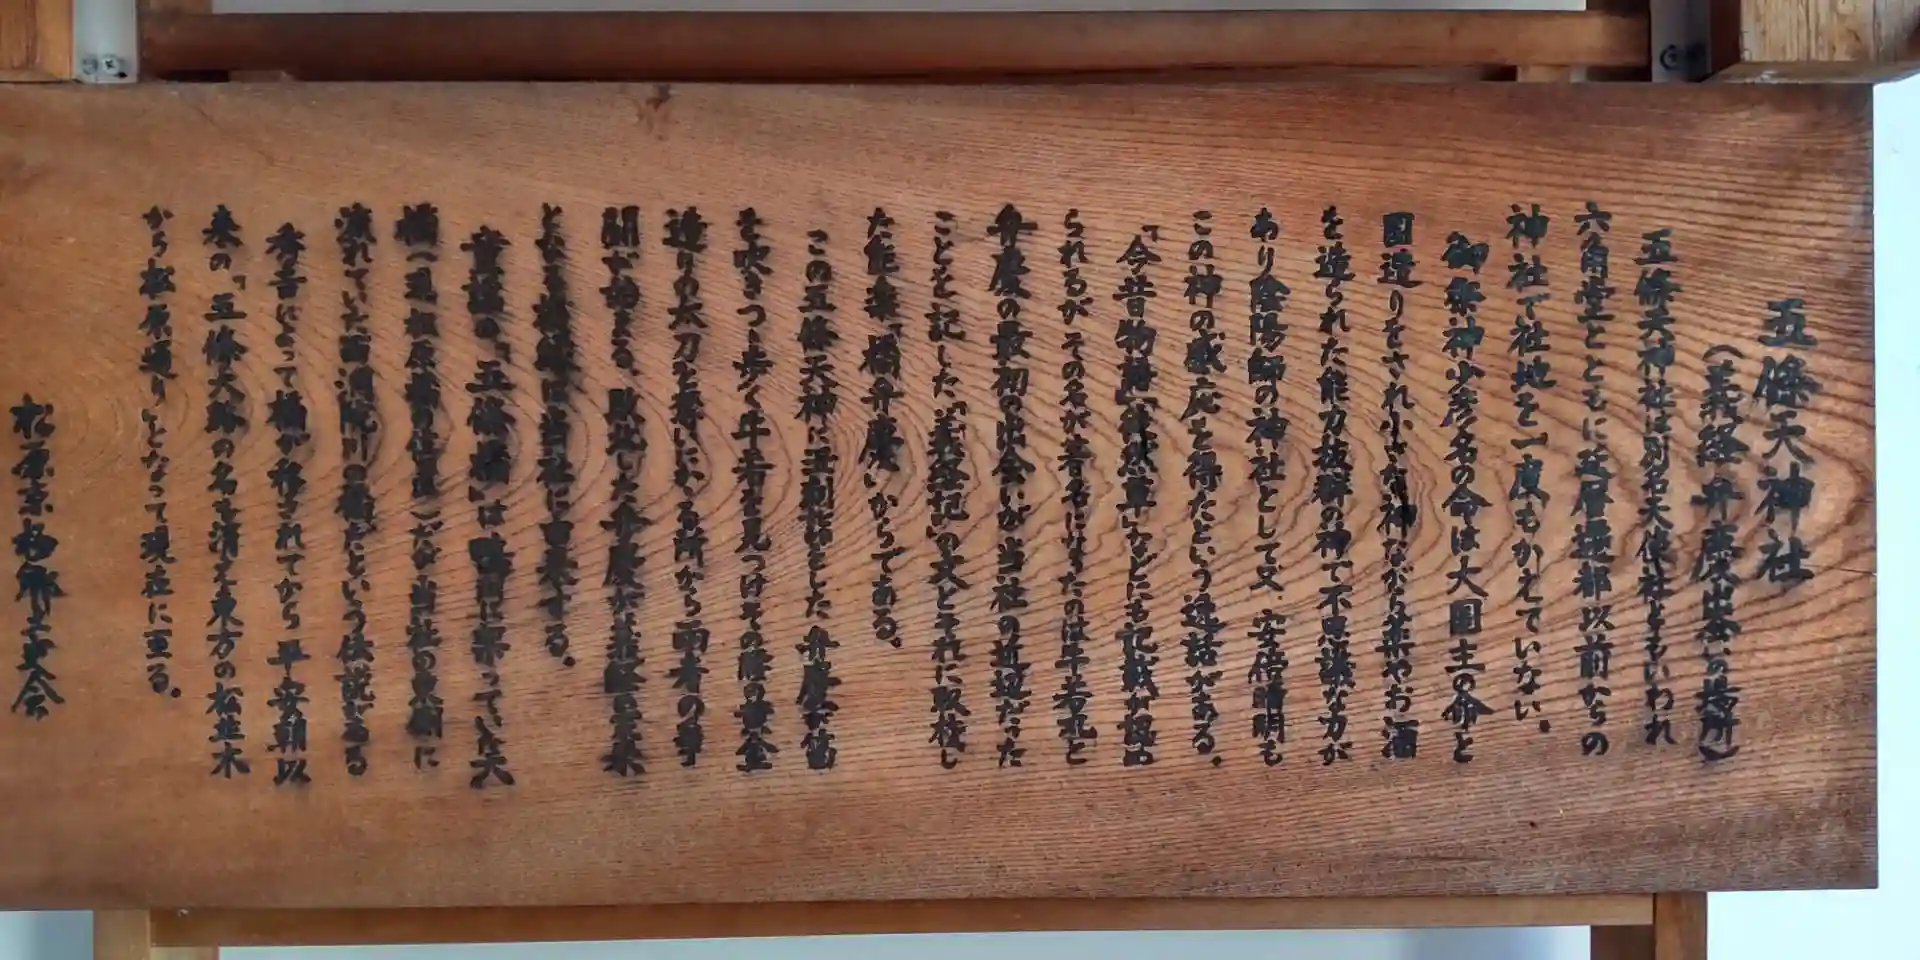 五條天神社
(義経弁慶出会いの場所)
五條天神社は別名天使社ともいわれ
六角堂とともに延暦遷都以前からの
神社で社地を一度もかえていない。
御祭神少彦名の命は大国主の命と
国造りをされ小さな神ながら薬やお酒
を造られた能力抜群の神で不思議な力が
あり陰陽師の神社として又、安倍晴明も
この神の感応を得たという逸話がある。
「今昔物語」「徒然草」などにも記載が認め
られるが その名が著名になすたのは牛若丸と
弁慶の最初の出会いが当社の近辺だった
ことを記した「義経記」の文とそれに取枝し
た能楽「橋弁慶」からである。
この五條天神に立判祈をした 弁慶が笛
を吹きつゝ歩く牛若を見つけその腰の黄金
造りの太刀を奪いにかゝる所から両者の争
闘が始まる。敗北した弁慶が義経の家来
となる機縁は当社に由来する。
童謡の、「五條橋」は鴨川に架っていた大
橋(現松原橋の位置)だな当社の東側に
流れていた西洞院川の橋だという伝説がある
秀吉によって橋が移されてから 平安朝以
来の、「五條大路の名を消え東方の松並木
から松原通りいとなって現在に至る。
松原京極商工会